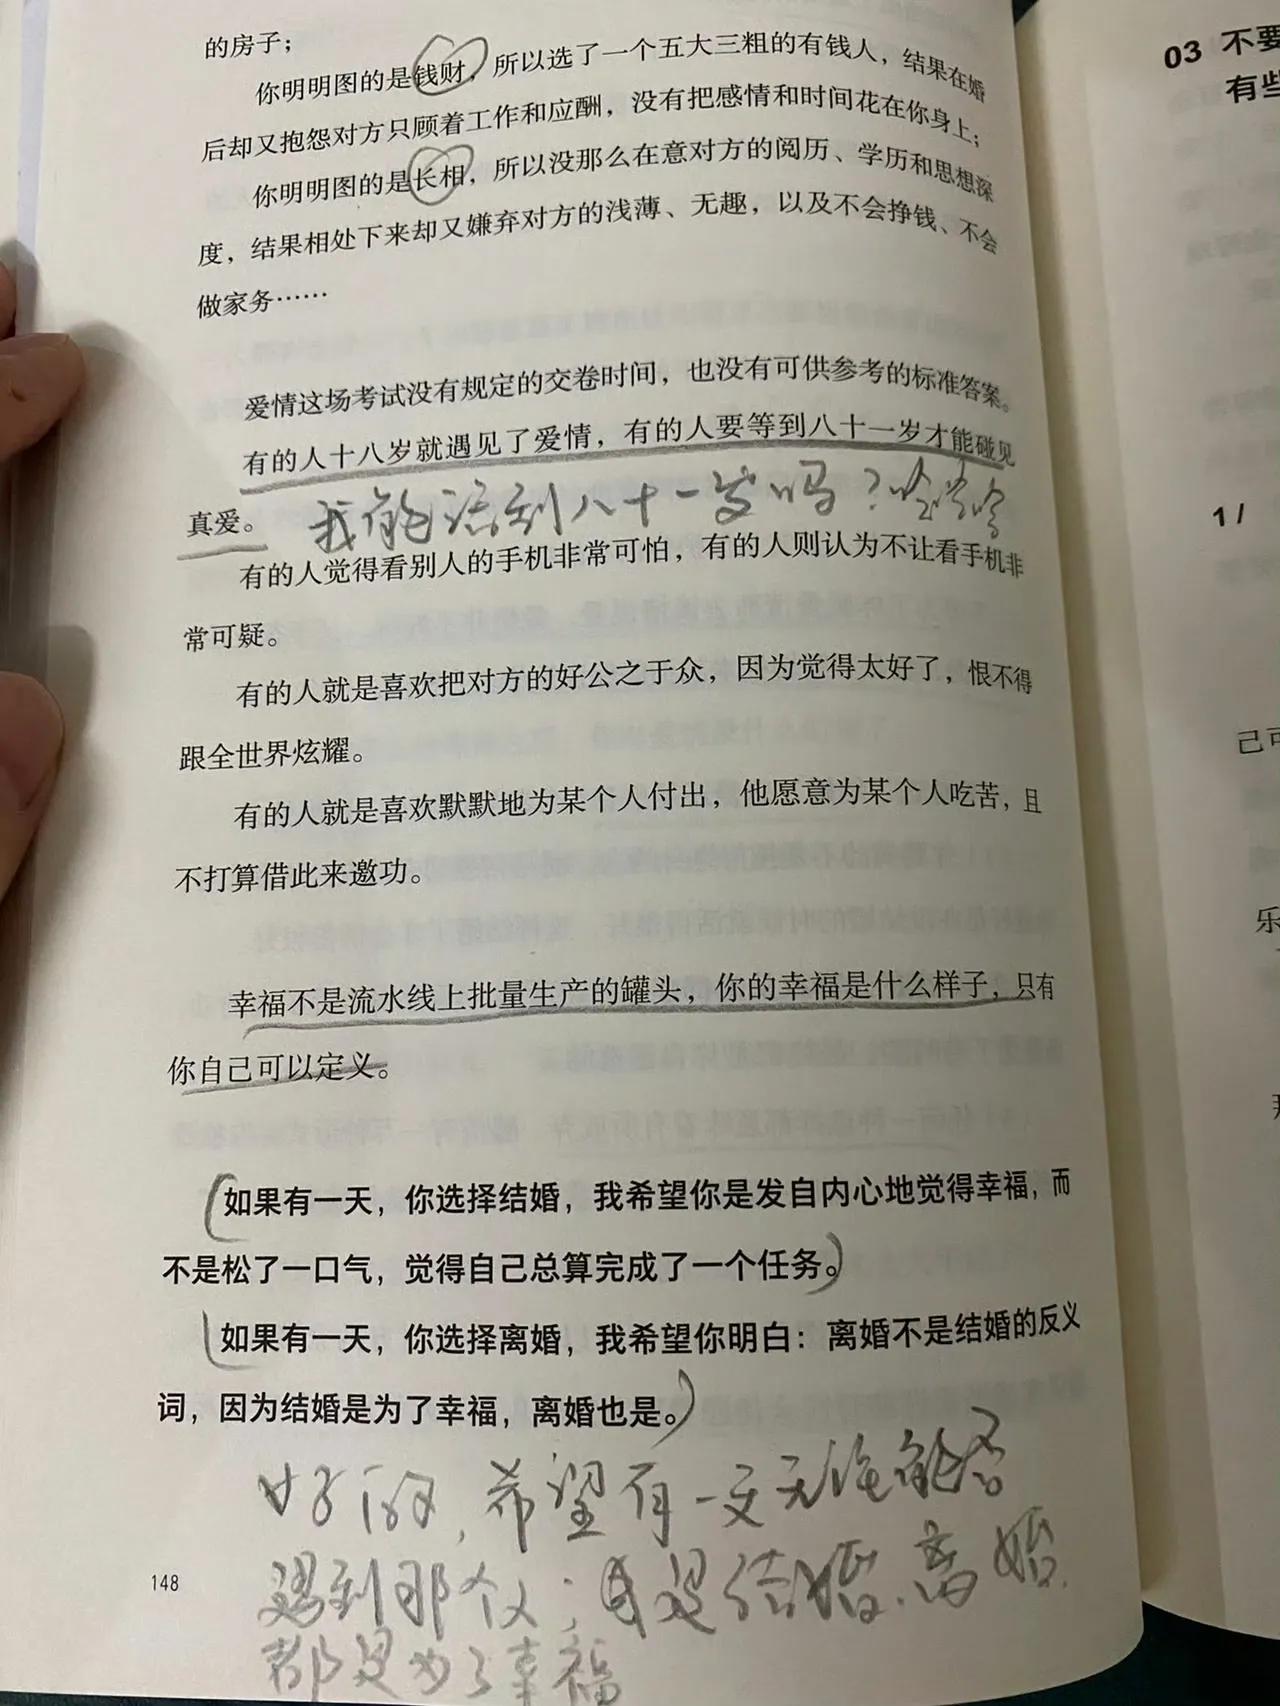 的房子；
你明明图的是钱财，所以选了一个五大三粗的有钱人，结果在婚
后却又抱怨对方只顾着工作和应酬，没有把感情和时间花在你身上；
你明明图的是长相，所以没那么在意对方的阅历、学历和思想深
度，结果相处下来却又嫌弃对方的浅薄、无趣，以及不会挣钱、不会
做家务……
爱情这场考试没有规定的交卷时间，也没有可供参考的标准答案。
有的人十八岁就遇见了爱情，有的人要等到八十一岁才能碰见
真爱。
我能活到八十一岁吗？哈哈哈
有的人觉得看别人的手机非常可怕，有的人则认为不让看手机非
常可疑。
有的人就是喜欢把对方的好公之于众，因为觉得太好了，恨不得
跟全世界炫耀。
有的人就是喜欢默默地为某个人付出，他愿意为某个人吃苦，且
不打算借此来邀功。
幸福不是流水线上批量生产的罐头，你的幸福是什么样子，只有
你自己可以定义。
如果有一天，你选择结婚，我希望你是发自内心地觉得幸福，而
不是松了一口气，觉得自己总算完成了一个任务。
如果有一天，你选择离婚，我希望你明白：离婚不是结婚的反义
词，因为结婚是为了幸福，离婚也是。
好的，希望有一天无论能否
遇到那个人；结婚、离婚
都是为了幸福
148
03 不要
有些
1 /
己可
乐